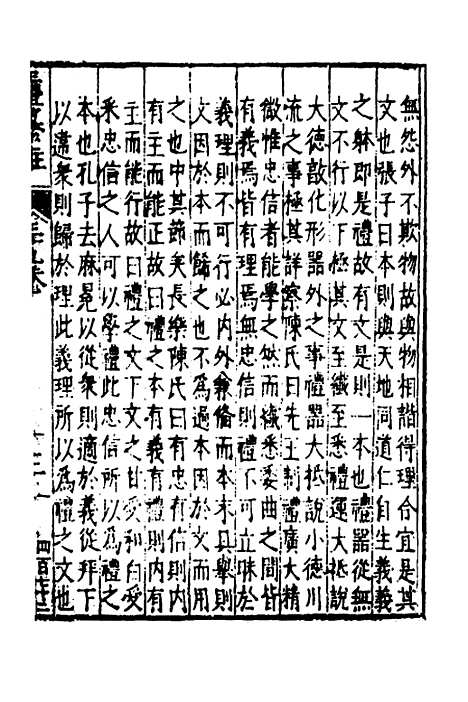 無然外不欺物故與物相諧得理合宜是其
文也張子曰本則與天地同道仁自生義義
之躰即是禮故有文是則一本也禮器從無
文不行以下極其文至纎至悉禮運大抵說
大德敦化形器外之事禮器大抵說小德川
流之事極其詳察陳氏曰先王制禮廣大精
微惟忠信者能學之然而纎悉委曲之間皆
有義焉皆有理焉無忠信則禮不可立昧於
義理則不可行必内外兼備而本末具舉則
文因於本而餙之也不爲過本因於文而用
之也中其節矣長樂陳氏曰有信則内
有主而能正故曰禮之本有義有禮則内有
主而能行故曰禮之文下文之甘受和白受
釆忠信之人可以學禮此忠信所以爲禮之
本也孔子去麻冕以從衆則適於義從拜下
以違衆則歸於理此義理所以爲禮之文也